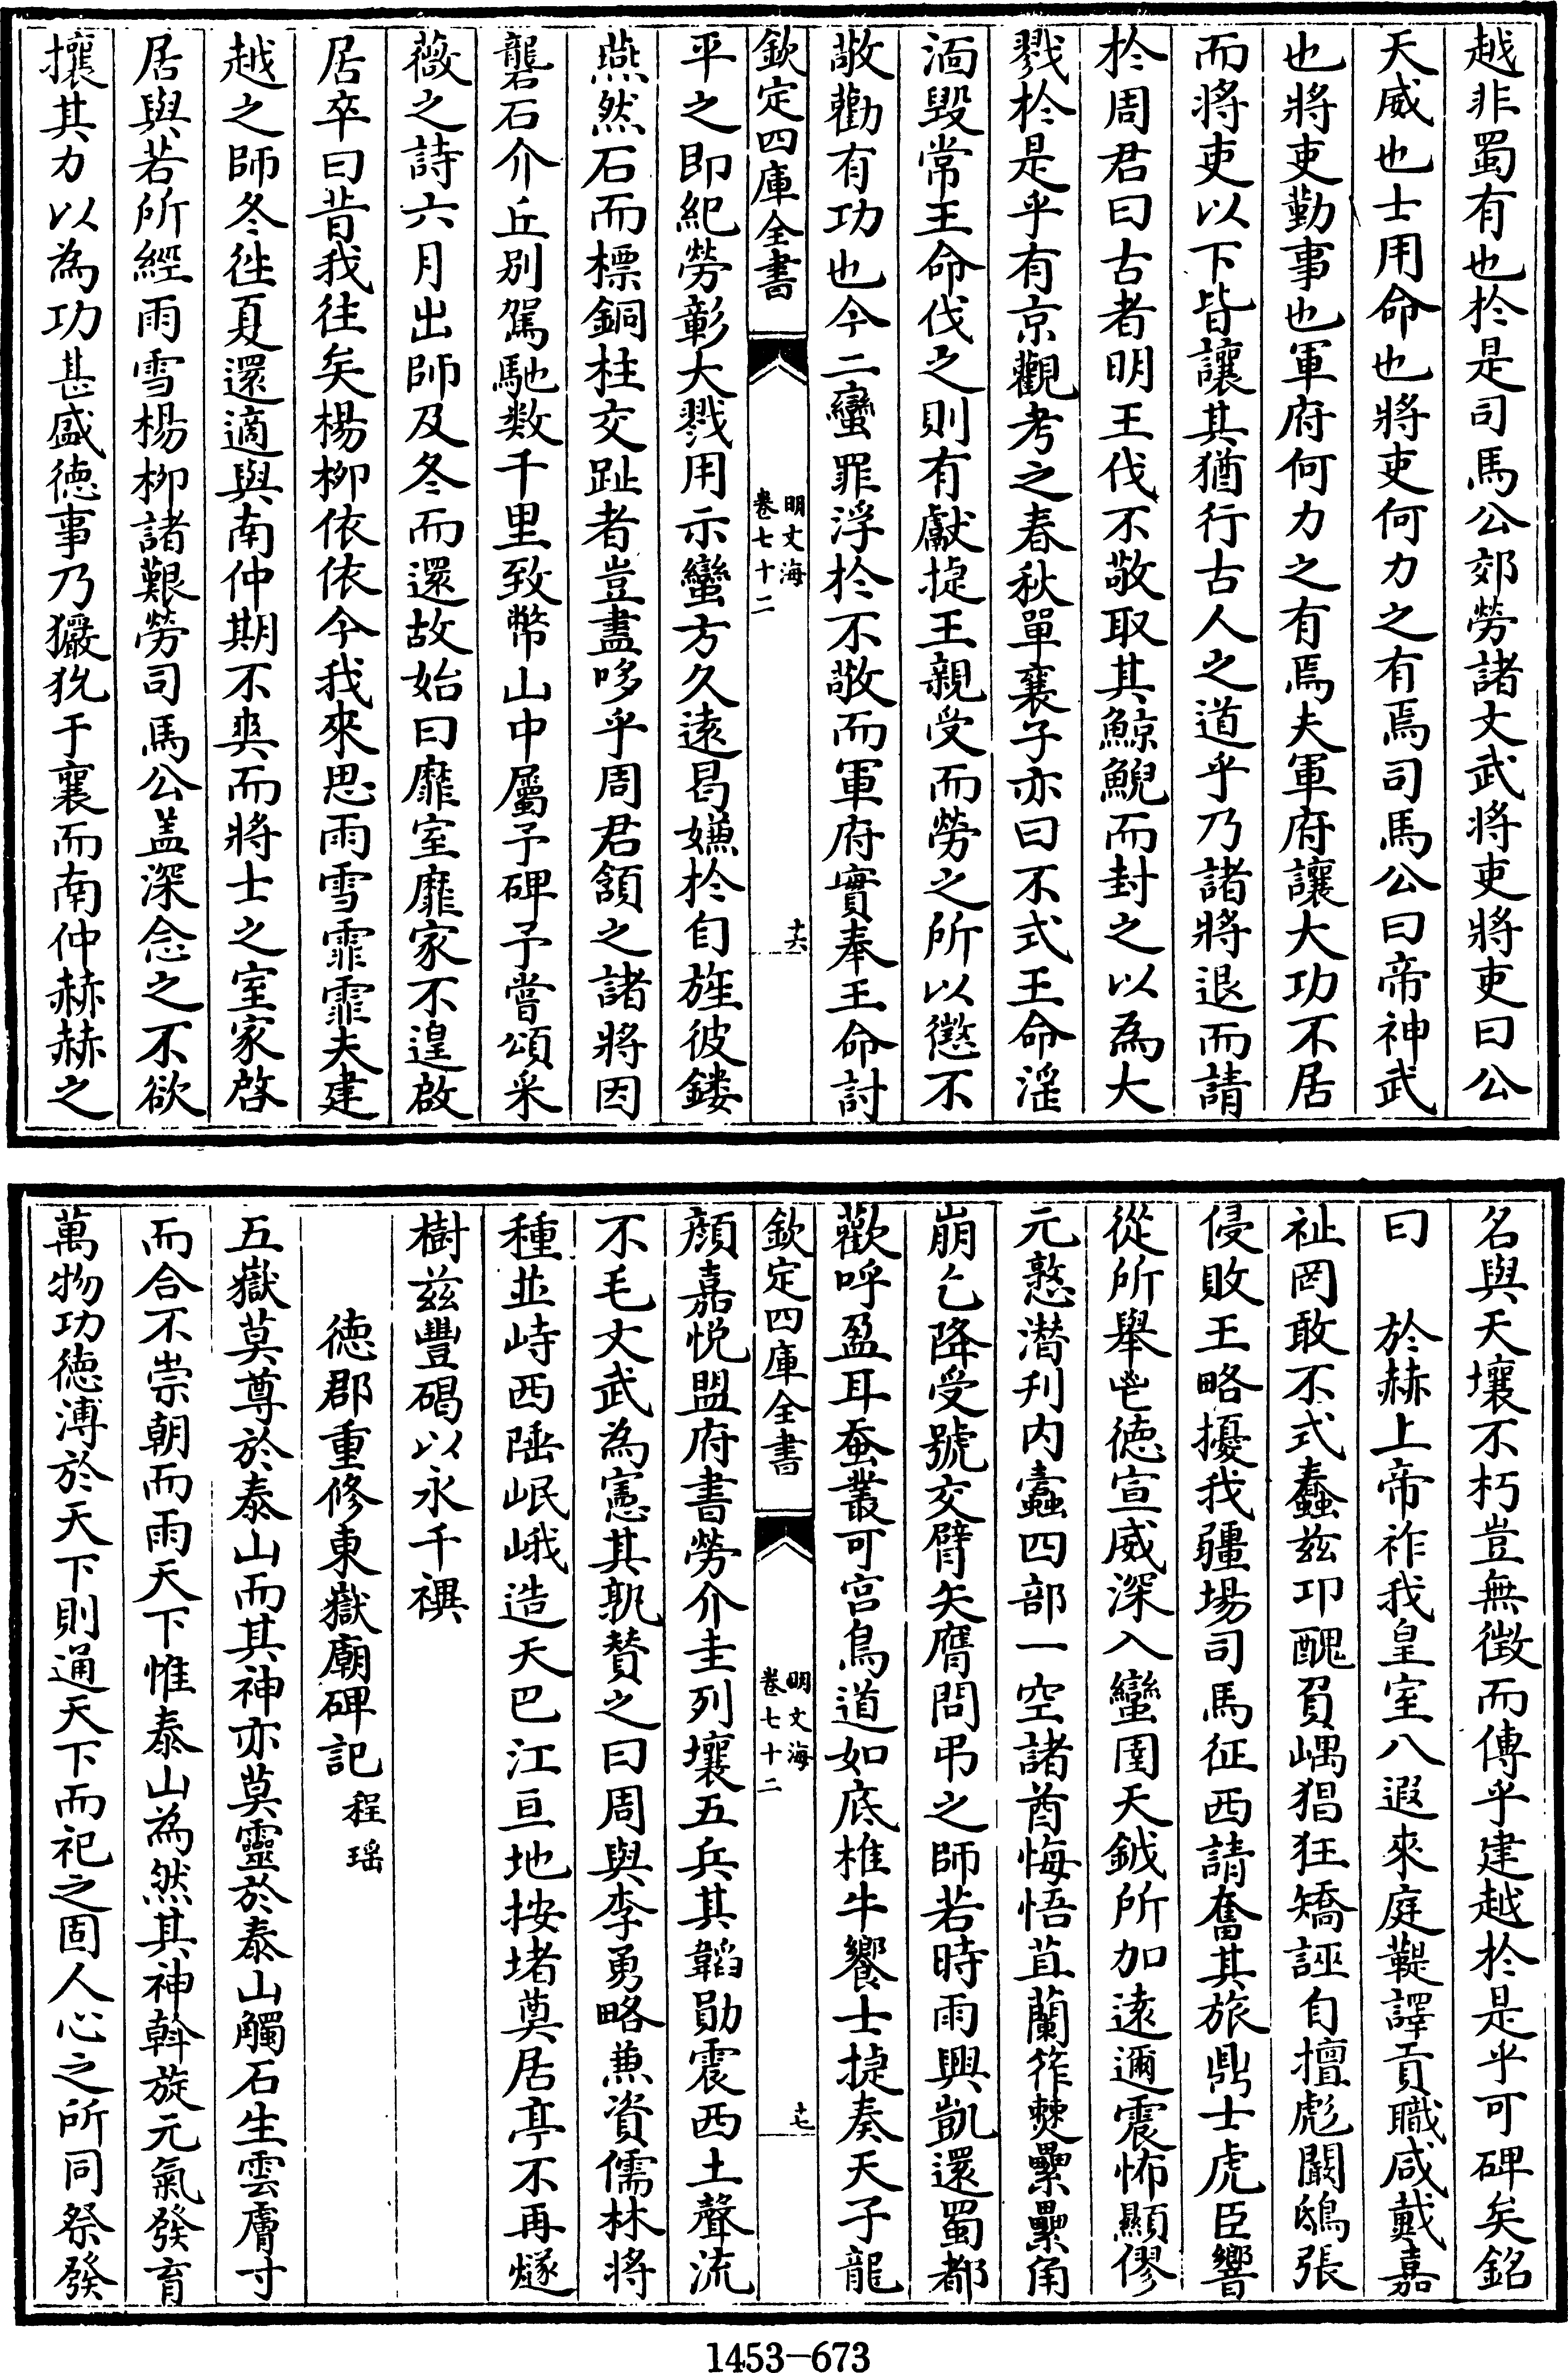 越非蜀有也於是司馬公郊勞諸文武將吏將吏曰公
天威也士用命也將吏何力之有焉司馬公曰帝神武
也將吏勤事也軍府何力之有焉夫軍府讓大功不居
而將吏以下皆讓其猶行古人之道乎乃諸將退而請
於周君曰古者明王伐不敬取其鯨鯢而封之以為大
戮於是乎有京觀考之春秋單襄子亦曰不式王命淫
湎毀常王命伐之則有獻捷王親受而勞之所以懲不
敬勸有功也今二蠻罪浮於不敬而軍府實奉王命討
欽定四庫全書
明文海
卷七十二
十六
平之即紀勞彰大戮用示蠻方久遠曷嫌於自旌彼鏤
燕然石而標銅柱交趾者豈盡哆乎周君頷之諸將因
礱石介丘別駕馳数千里致幣山中屬予碑予嘗頌采
薇之詩六月出師及冬而還故始曰靡室靡家不遑啟
居卒曰昔我往矣楊栁依依今我來思雨雪霏霏夫建
越之師冬徃夏還適與南仲期不爽而將士之室家啓
居與若所經雨雪楊栁諸艱勞司馬公盖深念之不欲
攘其力以為功甚盛徳事乃玁狁于襄而南仲赫赫之
名與天壤不朽豈無徴而傳乎建越於是乎可碑矣銘
曰　於赫上帝祚我皇室八遐來庭鞮譯貢職咸戴嘉
祉罔敢不式蠢兹卭醜負嵎猖狂矯誣自擅彪闞鴟張
侵敗王略擾我疆埸司馬征西請奮其旅鼎士虎臣響
從所舉耄徳宣威深入蠻圉天鉞所加逺邇震怖顯僇
元憝潜刋内蠧四部一空諸酋悔悟苴蘭筰僰纍纍角
崩乞降受號交臂矢膺問弔之師若時雨興凱還蜀都
歡呼盈耳蚕叢可宫鳥道如底椎牛饗士捷奏天子龍
欽定四庫全書
明文海
卷七十二
十七
顔嘉悦盟府書勞介圭列壤五兵其韜勛震西土聲流
不毛文武為憲其孰賛之曰周與李勇略兼資儒林將
種並峙西陲岷峨造天巴江亘地按堵奠居亭不再燧
樹兹豐碣以永千禩
徳郡重修東嶽廟碑記 程瑤
五嶽莫尊於泰山而其神亦莫靈於泰山觸石生雲膚寸
而合不崇朝而雨天下惟泰山為然其神斡旋元氣發育
萬物功徳溥於天下則通天下而祀之固人心之所同祭發
1453-673